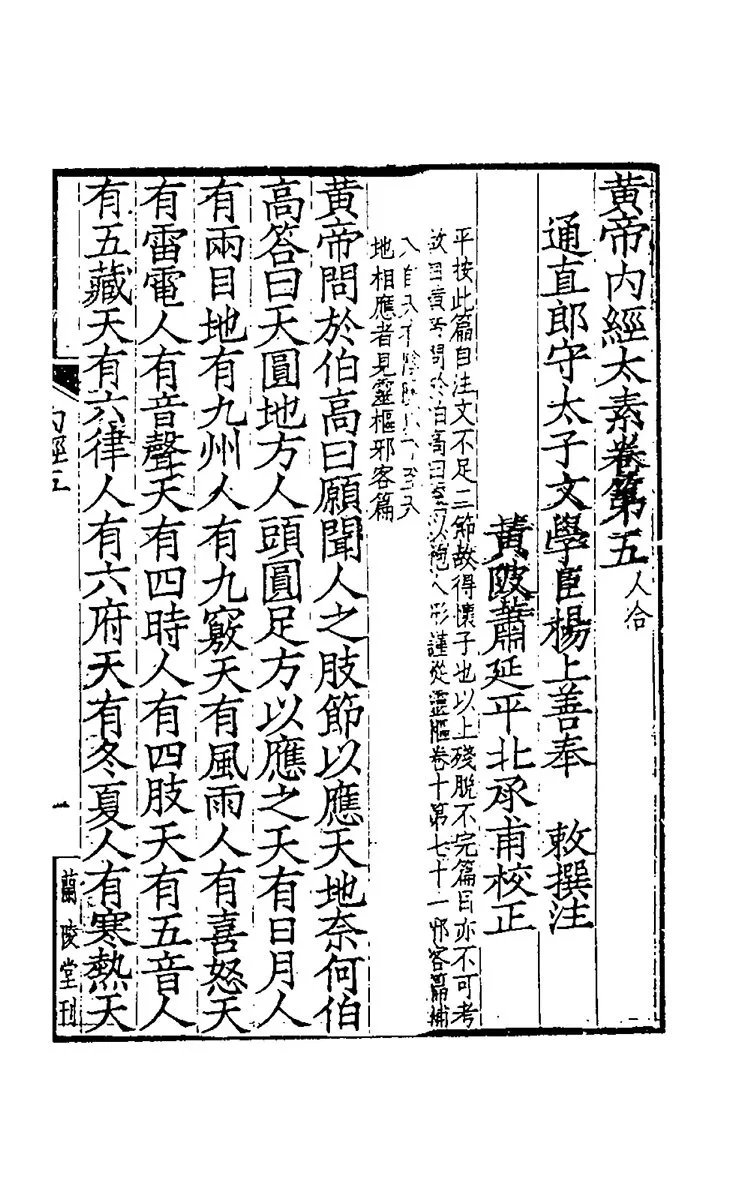 黃帝內經太素卷第五人合
通直郎守太子文學臣楊上善奉　敕撰注
黃陂蕭延平北承甫校正
平按此篇自注文不足二節故得懷子也以上殘脫不完篇目亦不可考
故自黃帝問於伯高曰至以抱人形謹從靈樞卷十第七十一邪客篇補
入自天有陰陽
地相應者見靈樞邪客篇
黃帝問於伯高曰願聞人之肢節以應天地奈何伯
高答曰天圓地方人頭圓足方以應之天有日月人
有兩目地有九州人有九竅天有風雨人有喜怒天
有雷電人有音聲天有四時人有四肢天有五音人
有五藏天有六律人有六府天有冬夏人有寒熱天
內經五
一
蘭陵堂刊